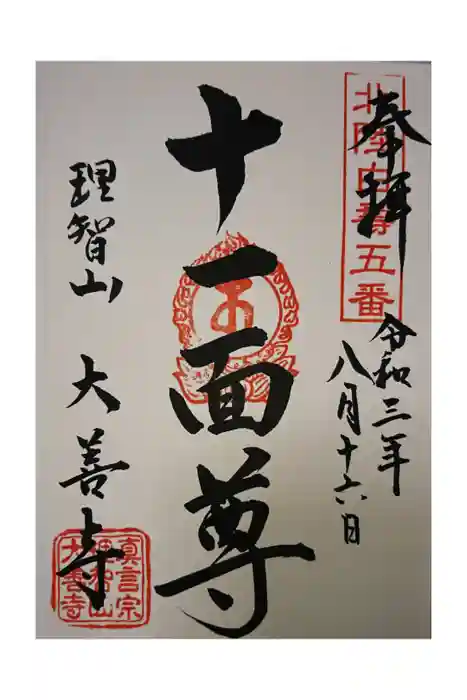 奉拝
北陸白寿五番
令和三年
八月十六日
十一面尊
理智山 大善寺
真言宗
理智山
大善寺